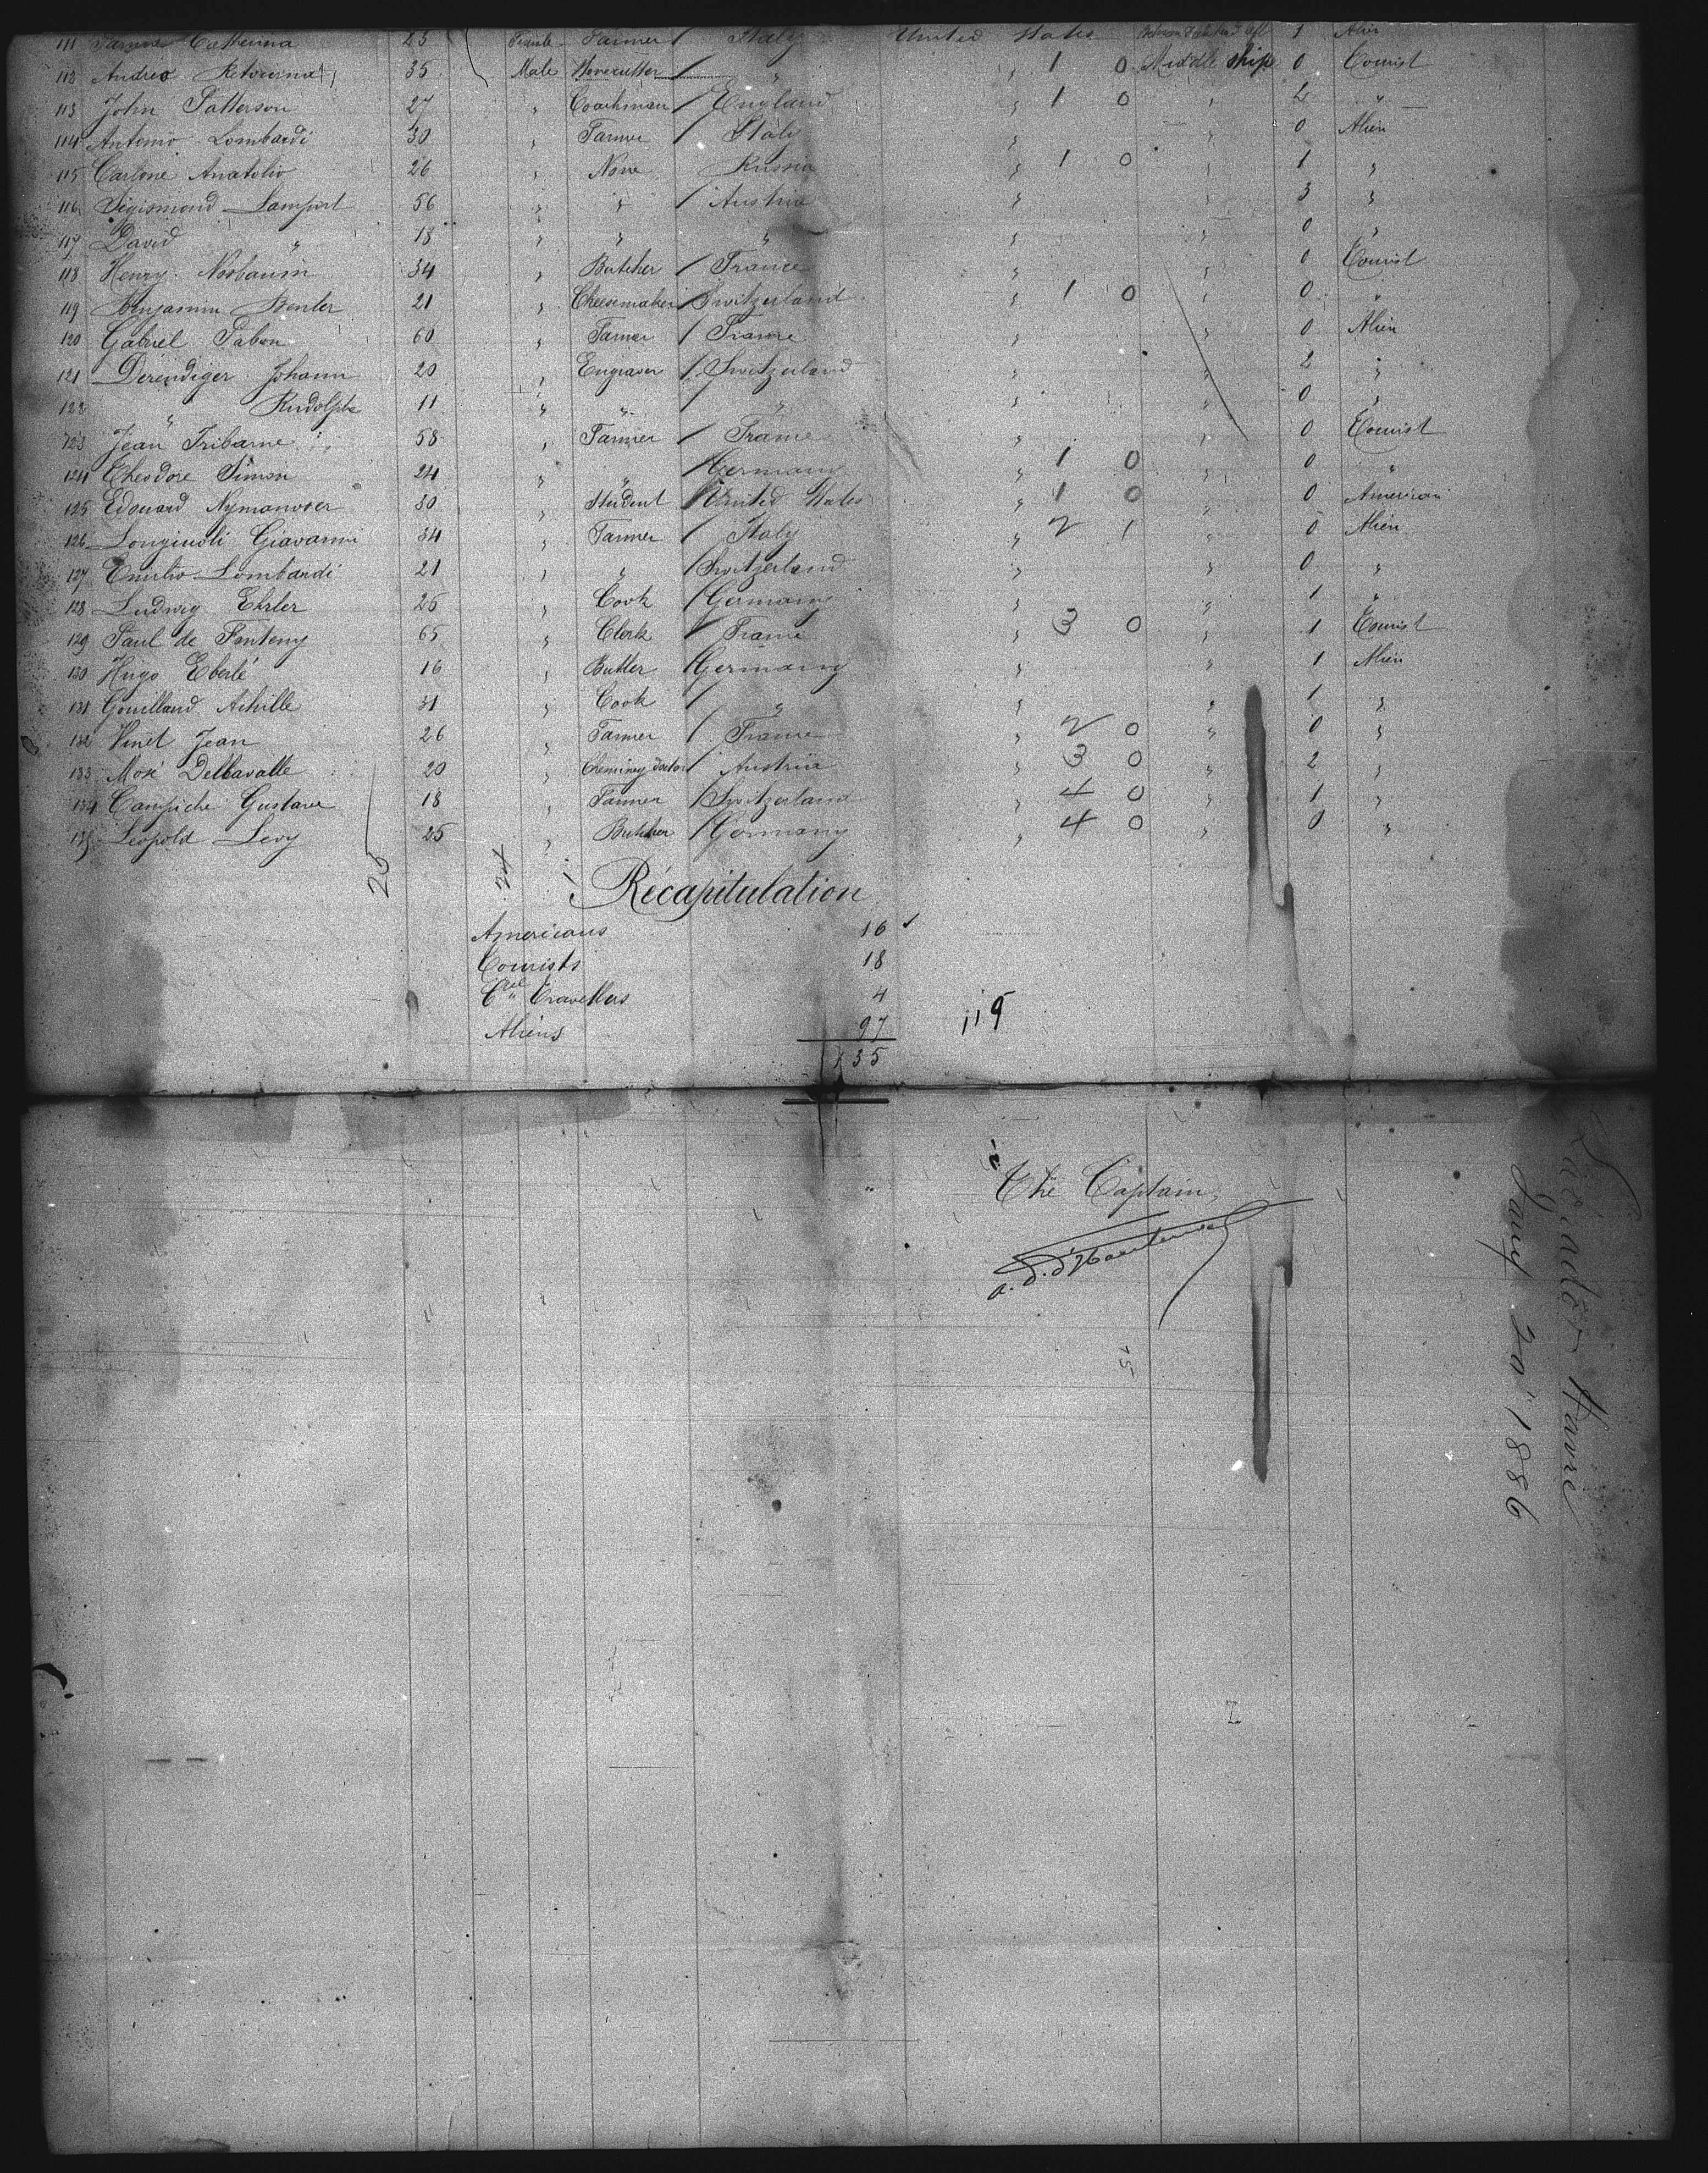 111 Catherina 25 Female Farmer / Italy United States 1 Alien
112 Andreo 35 Male / " " 1 0 Middle ship 0 Tourist
113 John Patterson 27 " Coachman / England " 1 0 " 2 "
114 Antonio Lombardi 30 " Farmer / Italy " " 0 Alien
115 Carlone Anatolio 26 " None Russia " 1 0 " 1 "
116 Sigismond Lamfurt 56 " " / Austria " " 3 "
117 David " 18 " " " " " 0 "
118 Henry Nosbaum 34 " Butcher / France " " 0 Tourist
119 Benjamin 21 " Cheesemaker / Switzerland " 1 0 " 0 "
120 Gabriel Pabon 60 " Farmer / France " " 0 Alien
121 Derendiger Johann 20 " Engraver / Switzerland " " 2 "
122 " Rudolph 11 " " / " " " 0 "
123 Jean Iribarne 58 " Farmer / France " " 0 Tourist
124 Theodore Simon 24 " " / Germany " 1 0 " 0 "
125 Edouard 30 " Student / United States " 1 0 " 0 American
126 Giavanni 34 " Farmer / Italy " 2 1 " 0 Alien
127 Emilio Lombardi 21 " " / Switzerland " " 0 "
128 Ludwig Ehrler 25 " Cook / Germany " " 1 "
129 Paul de Fonteny 65 " Clerk / France " 3 0 " 1 Tourist
130 Hugo Eberlé 16 " Butler / Germany " " 1 Alien
131 Gouilland Achille 31 " Cook / " " " 1 "
132 Vinet Jean 26 " Farmer / France " 2 0 " 0 "
133 Mosé Dellavalle 20 " Cheminey doctor / Austria " 3 0 " 2 "
134 Campiche Gustave 18 " Farmer / Switzerland " 4 0 " 1 "
135 Leopold Levy 25 " Butcher / Germany " 4 0 " 0 "
25 24 1
Récapitulation
Americans 16
Tourists 18
Cial Travellers 4
Aliens 97 119
135
The Captain,
Havre
Jany 20 1886